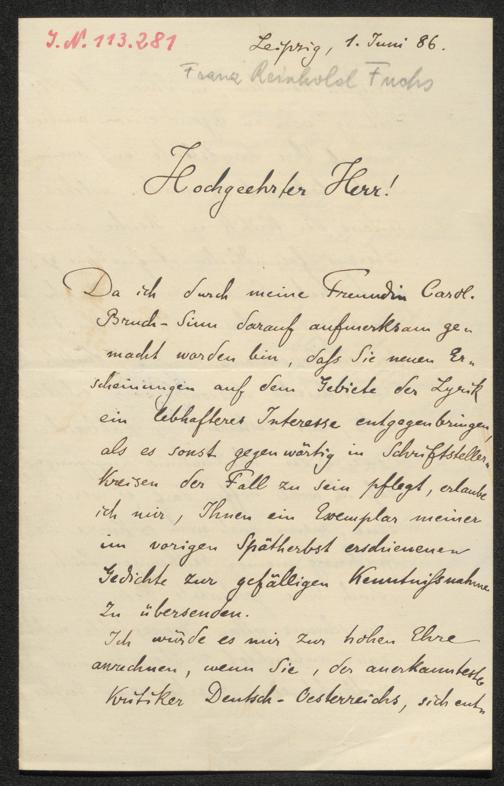 J. N. 113.281
Leipzig, 1. Juni 86.
Franz Reinhold Fuchs
Hochgeehrter Herr!
Da ich durch meine Freundin Carol.
Bruch-Sinn darauf aufmerksam ge=
macht worden bin, daß Sie neuen Er=
scheinungen auf dem Gebiete der Lyrik
ein lebhafteres Interesse entgegenbringen,
als es sonst gegenwärtig in Schriftsteller=
kreisen der Fall zu sein pflegt, erlaube
ich mir, Ihnen ein Exemplar meiner
im vorigen Spätherbst erschienenen
Gedichte zur gefälligen Kenntnißnahme
zu übersenden.
Ich würde es mir zur hohen Ehre
anrechnen, wenn Sie, der anerkannteste
Kritiker Deutsch-Oesterreichs, sich ent=